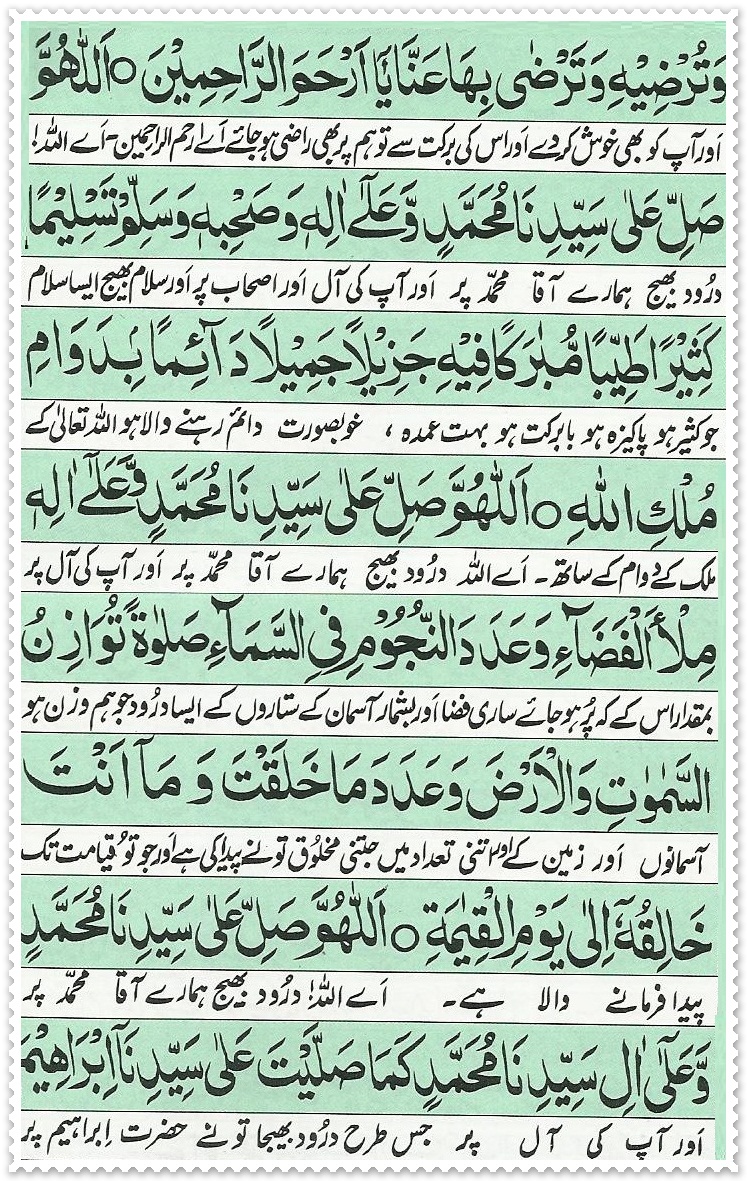 وَتُرْضِيْهِ وَتَرْضٰى بِهَا عَنَّا يَآ اَرْحَمَ الرَّاحِمِيْنَ ○ اَللّٰهُمَّ
اَور آپ کو بھی خوش کر دے اَور اس کی برکت سے تو ہم پر بھی راضی ہو جائے اَے ارحم الراحمین۔ اَے اللہ!
صَلِّ عَلٰى سَيِّدِنَا مُحَمَّدٍ وَّعَلٰٓى اٰلِهٖ وَصَحْبِهٖ وَسَلِّمْ تَسْلِيْمًا
درُود بھیج ہمارے آقا محمّد پر اَور آپ کی آل اَور اصحاب پر اَور سلام بھیج ایسا سلام
كَثِيْرًا طَيِّبًا مُّبٰرَكًا فِيْهِ جَزِيْلًا جَمِيْلًا دَآئِمًا بِدَوَامِ
جو کثیر ہو پاکیزہ ہو بابرکت ہو بہت عمدہ ، خوبصورت دائم رہنے والا ہو اللہ تعالیٰ کے
مُلْكِ اللهِ ○ اَللّٰهُمَّ صَلِّ عَلٰى سَيِّدِنَا مُحَمَّدٍ وَّعَلٰٓى اٰلِهٖ
ملک کے دوام کے ساتھ۔ اَے اللہ درُود بھیج ہمارے آقا محمّد پر اَور آپ کی آل پر
مِلْأَ الْفَضَآءِ وَعَدَدَ النُّجُوْمِ فِى السَّمَآءِ صَلٰوةً تُوَازِنُ
بمقدار اس کے کہ پُر ہو جائے ساری فضا اَور بشمار آسمان کے ستاروں کے ایسا درُود جو ہم وزن ہو
السَّمٰوٰتِ وَالْاَرْضَ وَعَدَدَ مَا خَلَقْتَ وَمَآ اَنْتَ
آسمانوں اَور زمین کے اور اتنی تعداد میں جتنی مخلُوق تو نے پیدا کی ہے اَور جو تو قیامت تک
خَالِقُهٗٓ اِلٰى يَوْمِ الْقِيٰمَةِ ○ اَللّٰهُمَّ صَلِّ عَلٰى سَيِّدِنَا مُحَمَّدٍ
پیدا فرمانے والا ہے۔ اَے اللہ! درُود بھیج ہمارے آقا محمّد پر
وَّعَلٰٓى اٰلِ سَيِّدِنَا مُحَمَّدٍ كَمَا صَلَّيْتَ عَلٰى سَيِّدِنَآ اِبْرَاهِيْمَ
اَور آپ کی آل پر جس طرح درُود بھیجا تو نے حضرت اِبراہیم پر